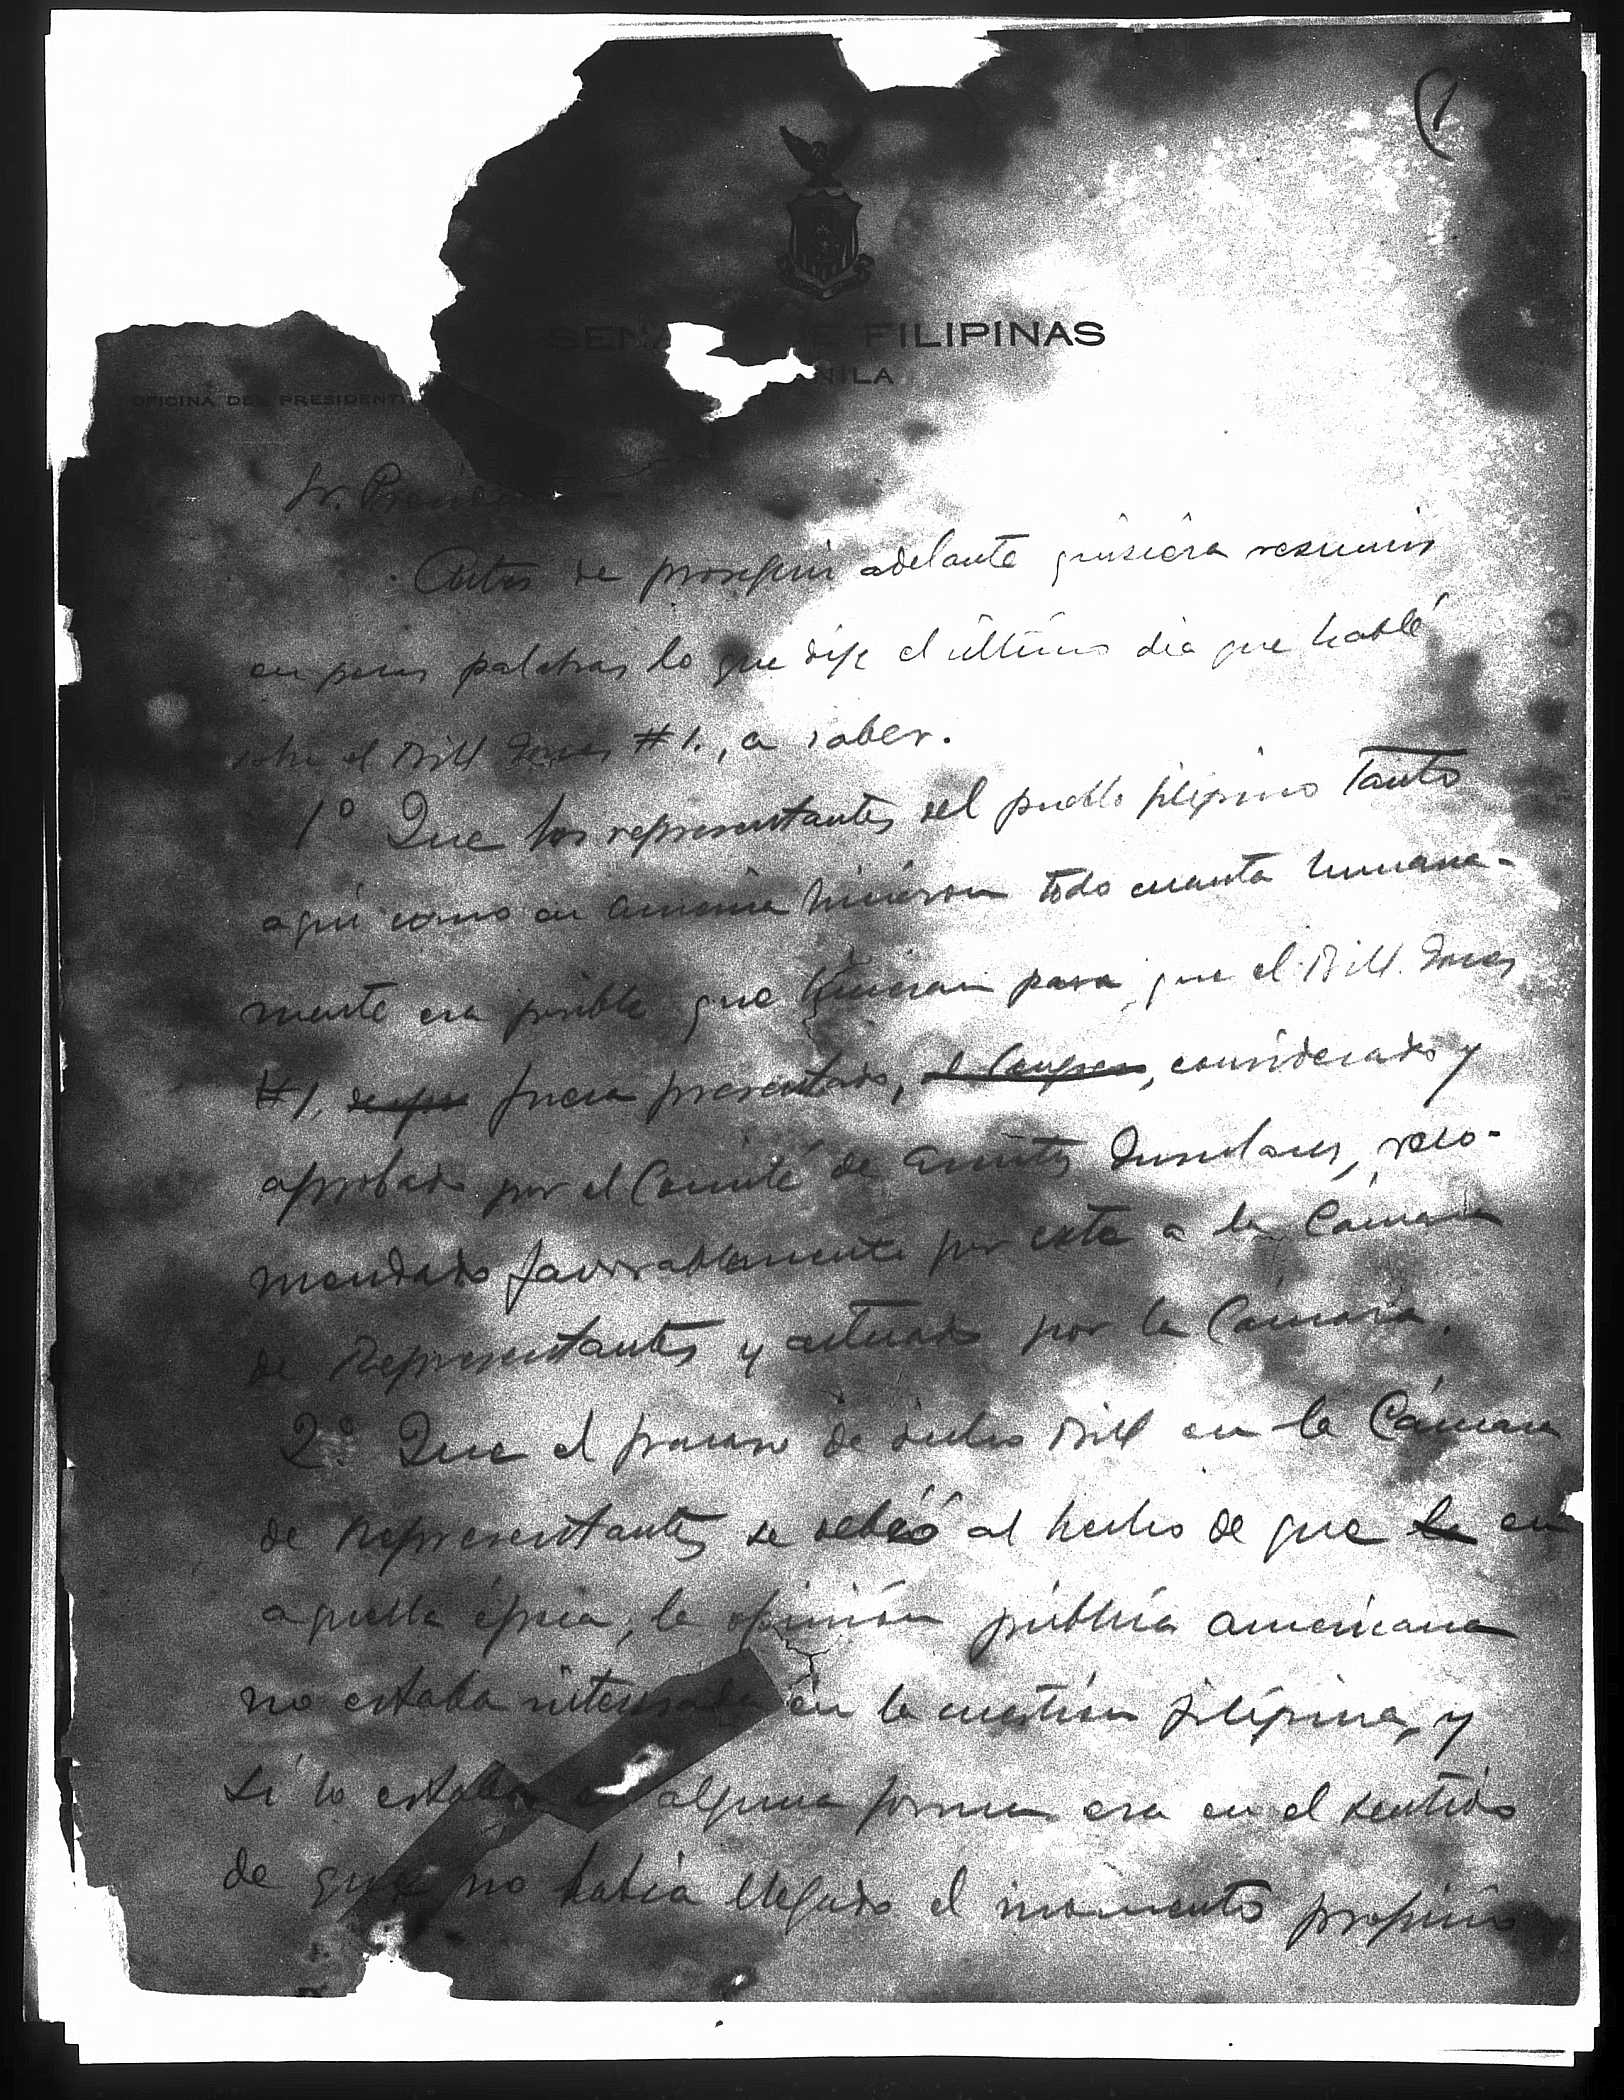 (1
SENA DE FILIPINAS
NILA
OFICINA DEL PRESIDENT
Sr. Presid
Antes de proseguir adelante quisiera resumir
en pocas palabras lo que dije el último dia que hablé
sobre el Bill Jones #1., a saber.
1º Que los representantes del pueblo filipino tanto
aquí como en America hicieron todo cuanto humana-
mente era posible que hicieran para que el Bill Jones
#1, fuera presentado, el Congreso, considerado y
aprobado por el Comité de Asuntos Insulares, reco-
mendado favorablemente por este a la Cámara
de Representantes y actuado por la Cámara.
2º. Que el fracaso de dicho Bill en la Cámara
de Representantes se debió al hecho de que la en
aquella época, la opinión pública americana
no estaba interesada en la cuestión filipina, y
si lo estaba en alguna forma era en el sentido
de que no habia llegado el momento propicio